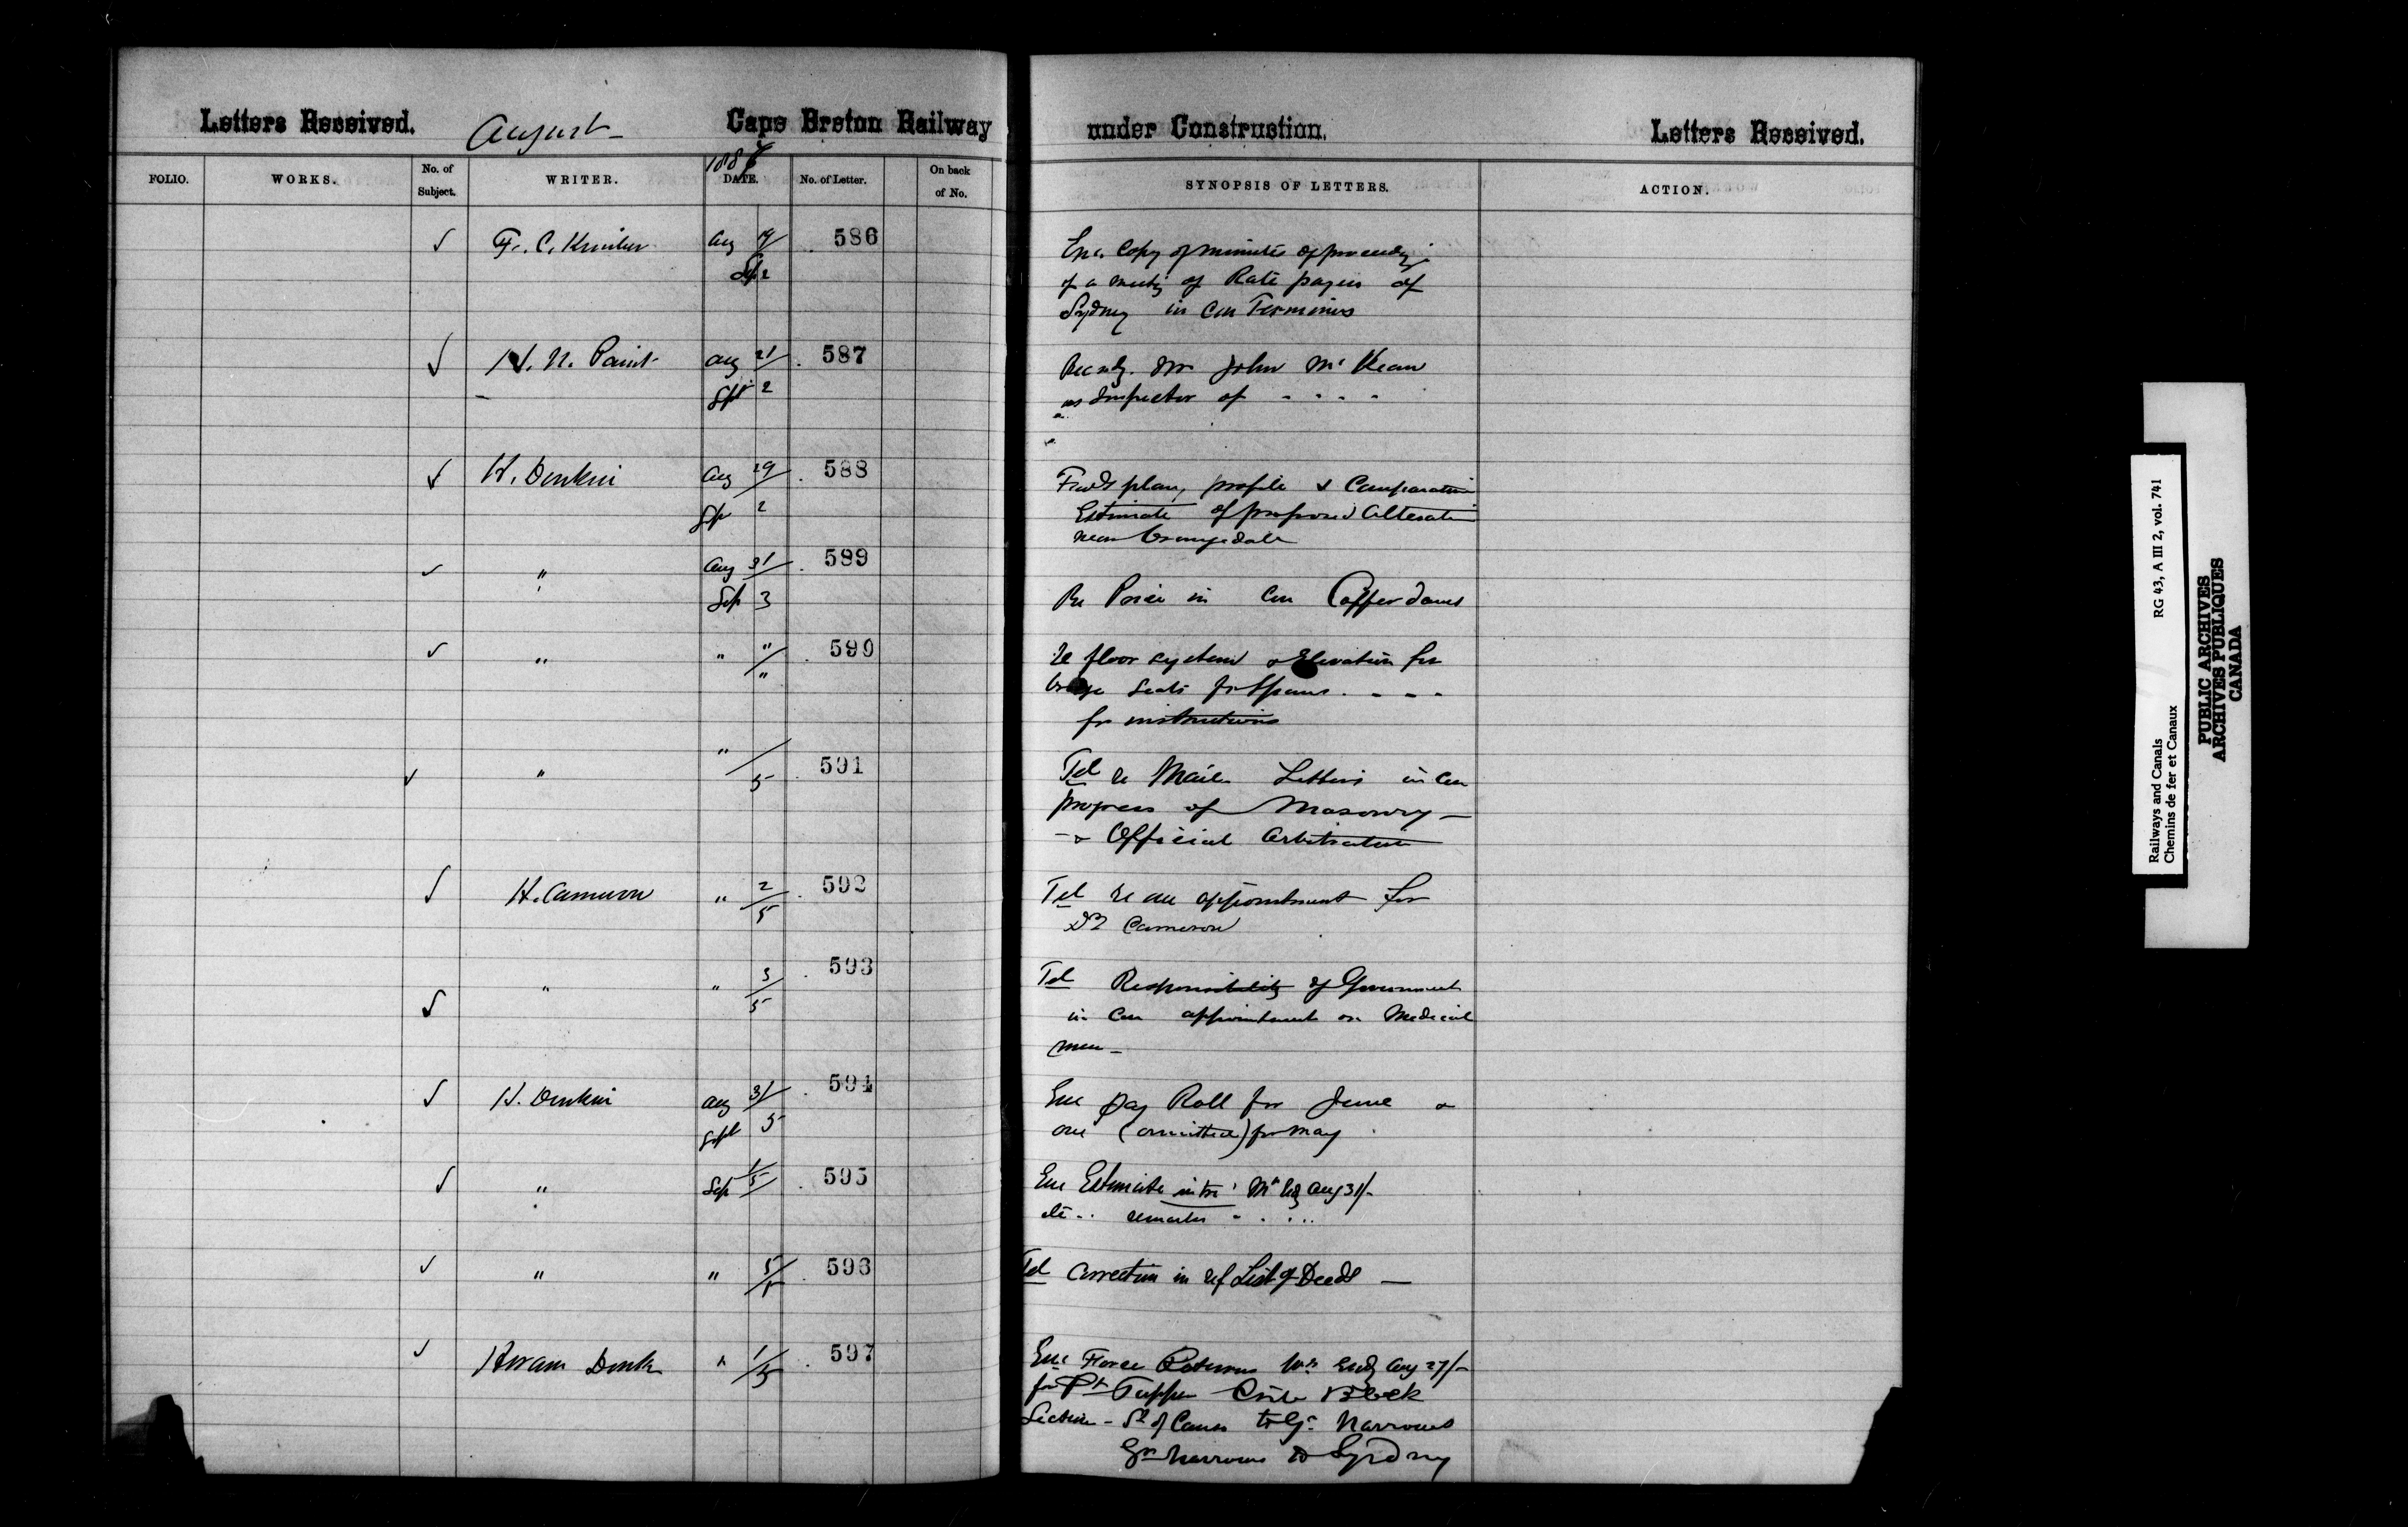 Letters Received. August Cape Breton Railway under Construction. Letters Received.
1887
FOLIO. WORKS. No. of Subject. WRITER. DATE. No. of Letter. On back of No. SYNOPSIS OF LETTERS. ACTION.
√ F. C. Aug 19 586 Enc. Copy of minutes of proceedgs
Sep 2 of a meetg of Rate payers of
Sydney in con Terminus
√ H. N. Paint Aug 21 587 Mr John McKean
Sept 2 as Inspector of - - - -
√ H. Donkin Aug 29 588 Fwds plan, profile & Comparative
Sep 2 Estimate of proposed Alteration
near Orangedale
√ " Aug 31 589
Sep 3 Re Price in con Cofferdams
√ " " "/" 590 Re floor system & Elevation for
bridge seats for Spans - - - -
for instructions
√ " " /5 591 Tel re Mail Letters in con
progress of Masonry -
- & Official Arbitration
√ H. Cameron " 2/5 592 Tel re an appointment for
Dr Cameron
√ " " 3/5 593 Tel Responsibility of Government
in con appointment on Medical
men -
√ H. Donkin Aug 31 594 Enc Pay Roll for June &
Sept 5 one (omitted) for May
√ " Sep 1/5 595 Enc Estimate Aug 31/-
etc - - remarks - - - -
√ " " 5/5 596 Tel Correction in ref List of Deeds -
√ Hiram Donk " 1/5 597 Enc Force Returns Wk endg Aug 27/-
for Pt Tupper
Section - St of Canso to Gr Narrows
Gr Narrows to Sydney
Railways and Canals RG 43, A III 2, vol. 741
Chemins de fer et Canaux
PUBLIC ARCHIVES
ARCHIVES PUBLIQUES
CANADA